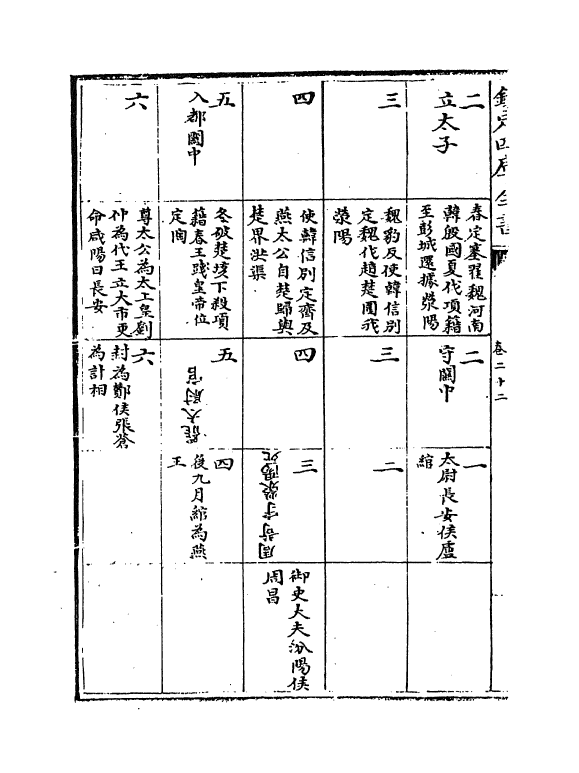 欽定四庫全書
卷二十二
二
立太子
春定塞翟魏河南
韓殷國夏伐項籍
至彭城還據滎陽
二
守關中
一
太尉長安侯盧
綰
三
魏豹反使韓信别
定魏伐趙楚圍我
滎陽
三
二
四
使韓信别定齊及
燕太公自楚歸與
楚界洪渠
四
三
周苛守滎陽死
御史大夫汾陽侯
周昌
五
入都關中
冬破楚垓下殺項
籍春王踐皇帝位
定陶
五
罷太尉官
四
後九月綰為燕
王
六
尊太公為太上皇劉
仲為代王立大市更
命咸陽曰長安
六
封為鄭侯張蒼
為計相